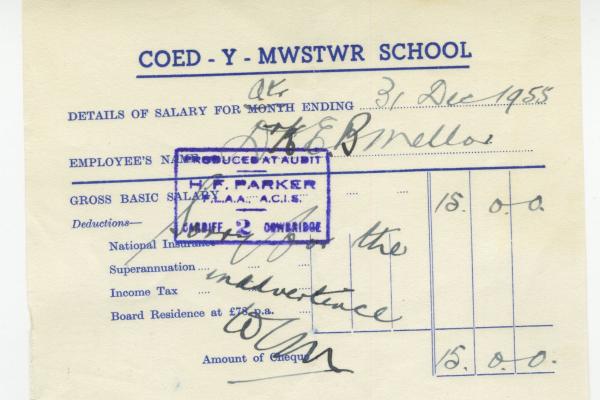 COED - Y - MWSTWR SCHOOL
qtr
DETAILS OF SALARY FOR MONTH ENDING 31 Dec 1955
EMPLOYEE'S NAME Dr K E B Mellor
PRODUCED AT AUDIT
H. F. PARKER
F.L.A.A., A.C.I.S.
CARDIFF 2 COWBRIDGE
GROSS BASIC SALARY 15. 0. 0.
Deductions—
National Insurance
Sorry for the
Superannuation
inadvertence
Income Tax
Board Residence at £78 p.a.
Amount of Cheque 15. 0. 0.